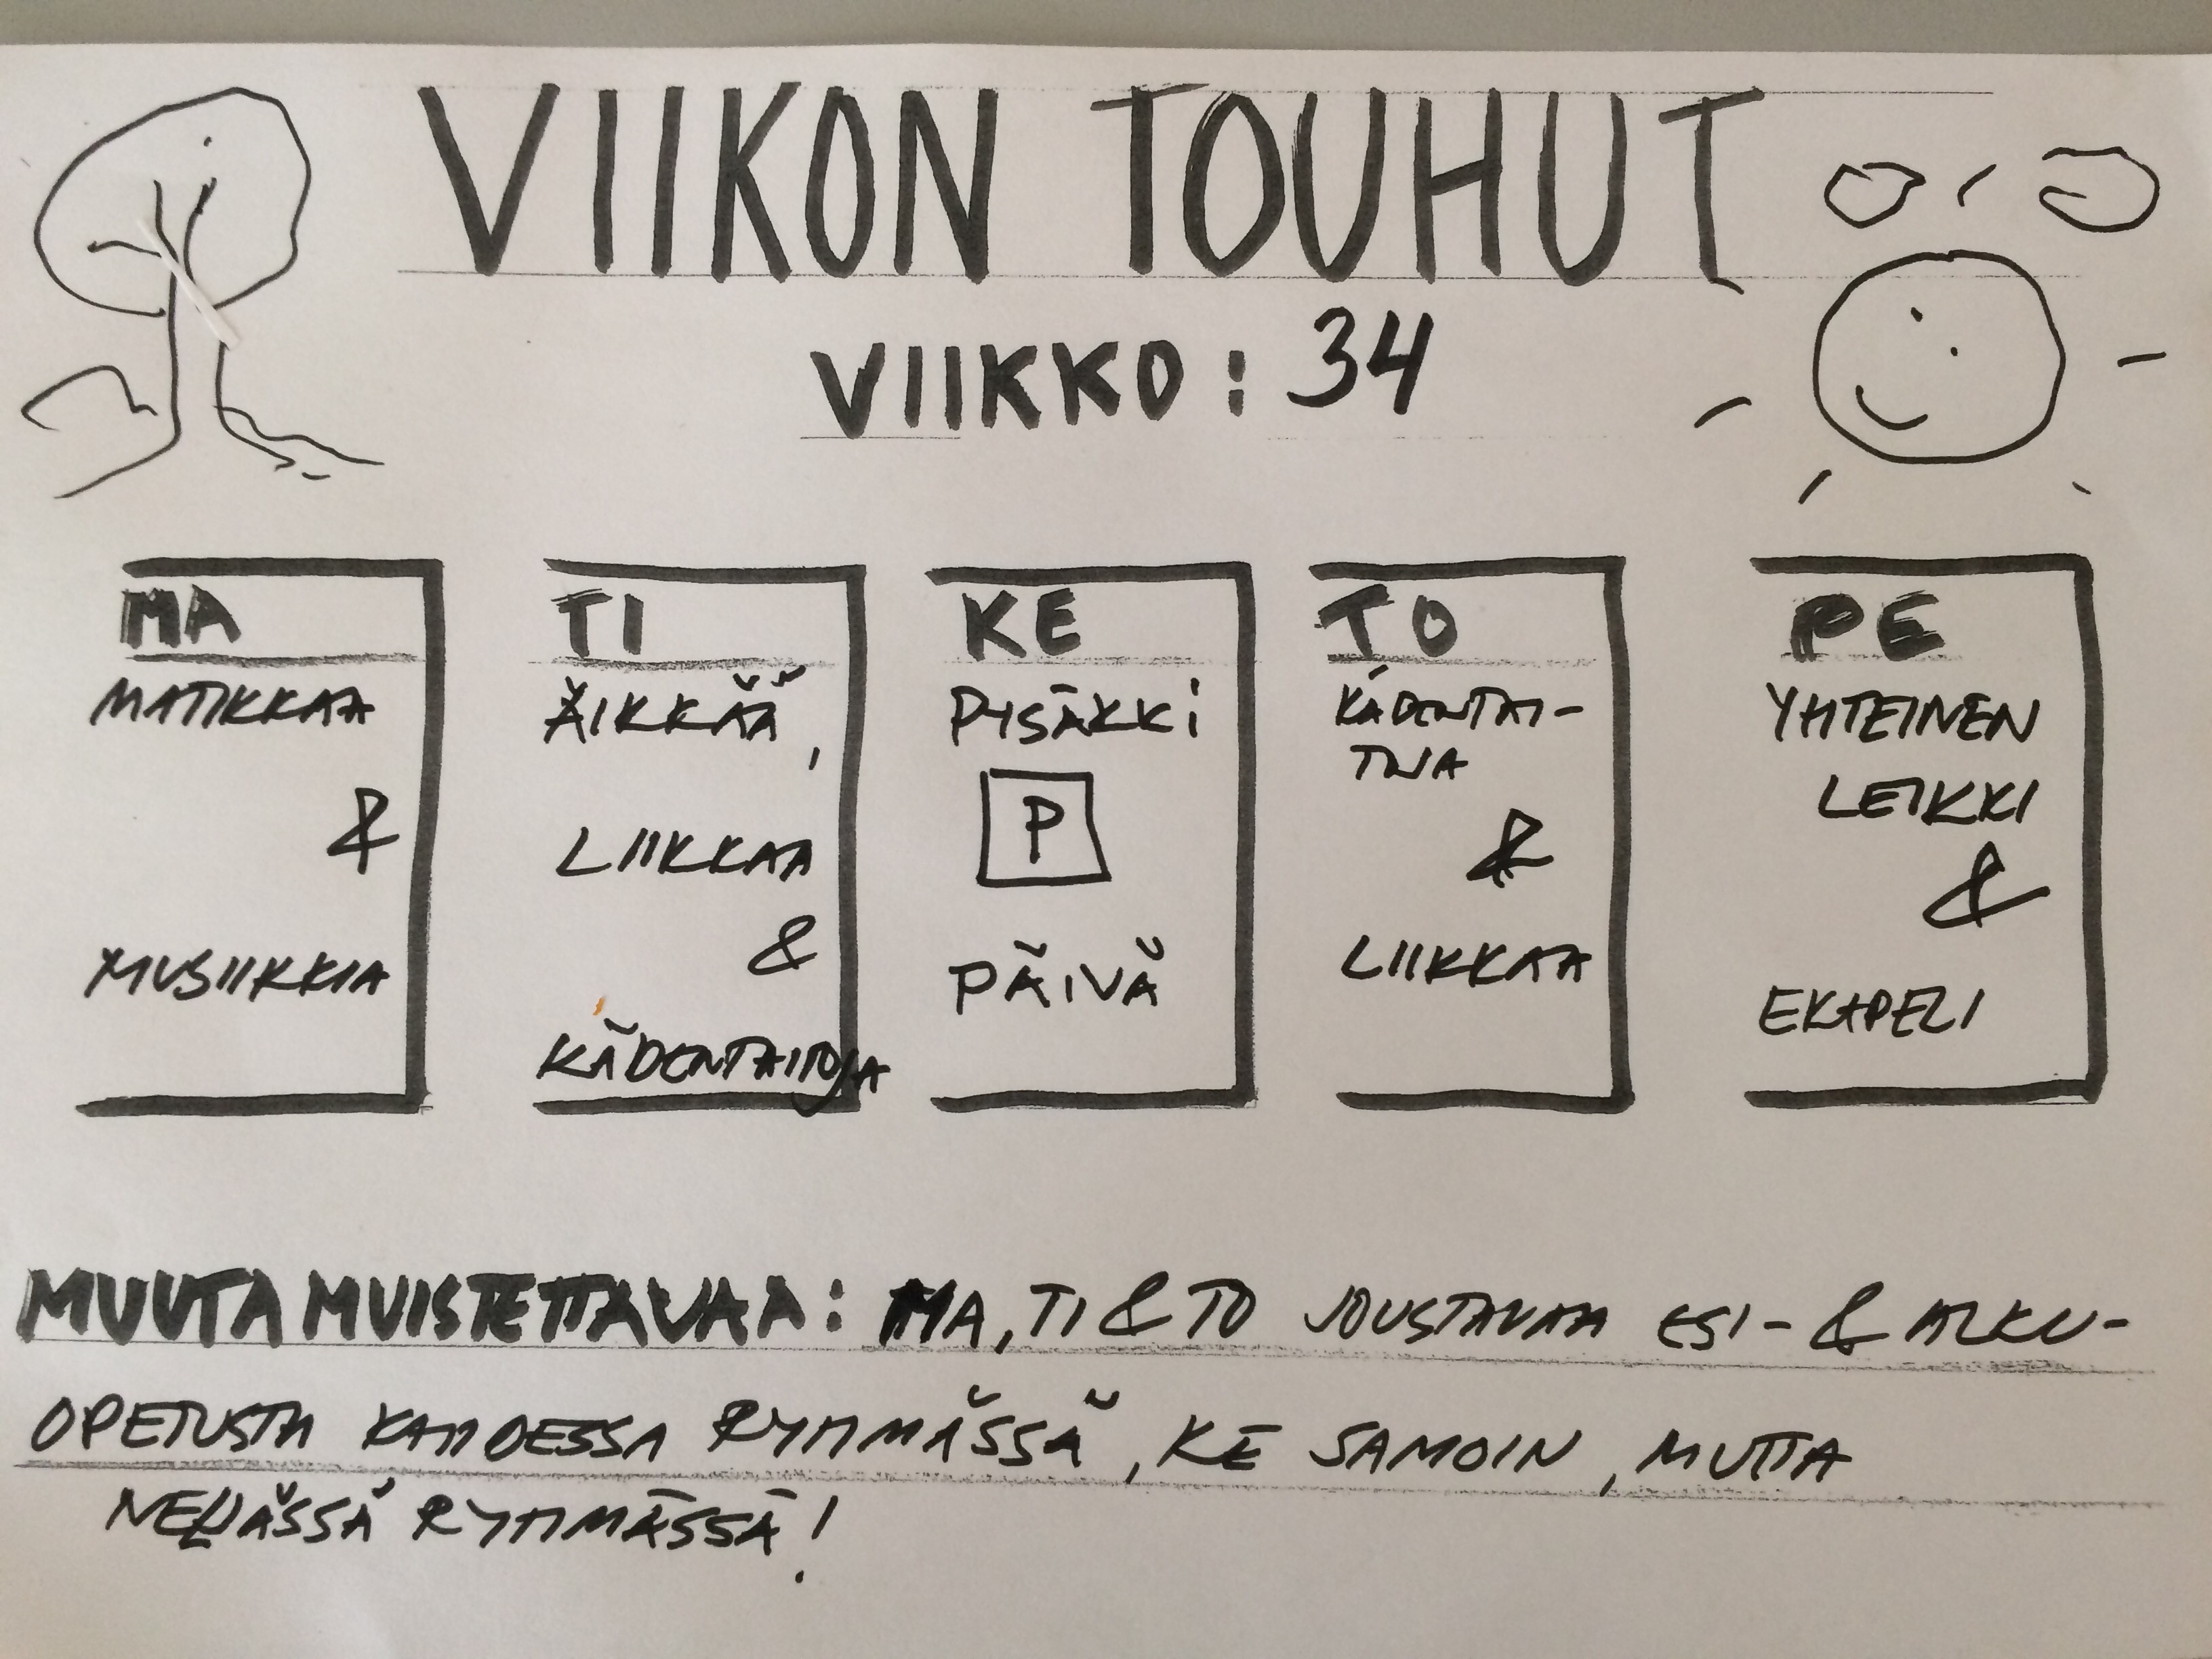 VIIKON TOUHUT
VIIKKO: 34
MA
MATIKKAA
&
MUSIIKKIA
TI
ÄIKKÄÄ,
LIIKKAA
&
KÄDENTAITOJA
KE
PYSÄKKI
P
PÄIVÄ
TO
KÄDENTAI-
TOJA
&
LIIKKAA
PE
YHTEINEN
LEIKKI
&
EKAPELI
MUUTA MUISTETTAVAA: MA, TI & TO JOUSTAVAA ESI- & ALKU-
OPETUSTA KAHDESSA RYHMÄSSÄ, KE SAMOIN, MUTTA
NELJÄSSÄ RYHMÄSSÄ!